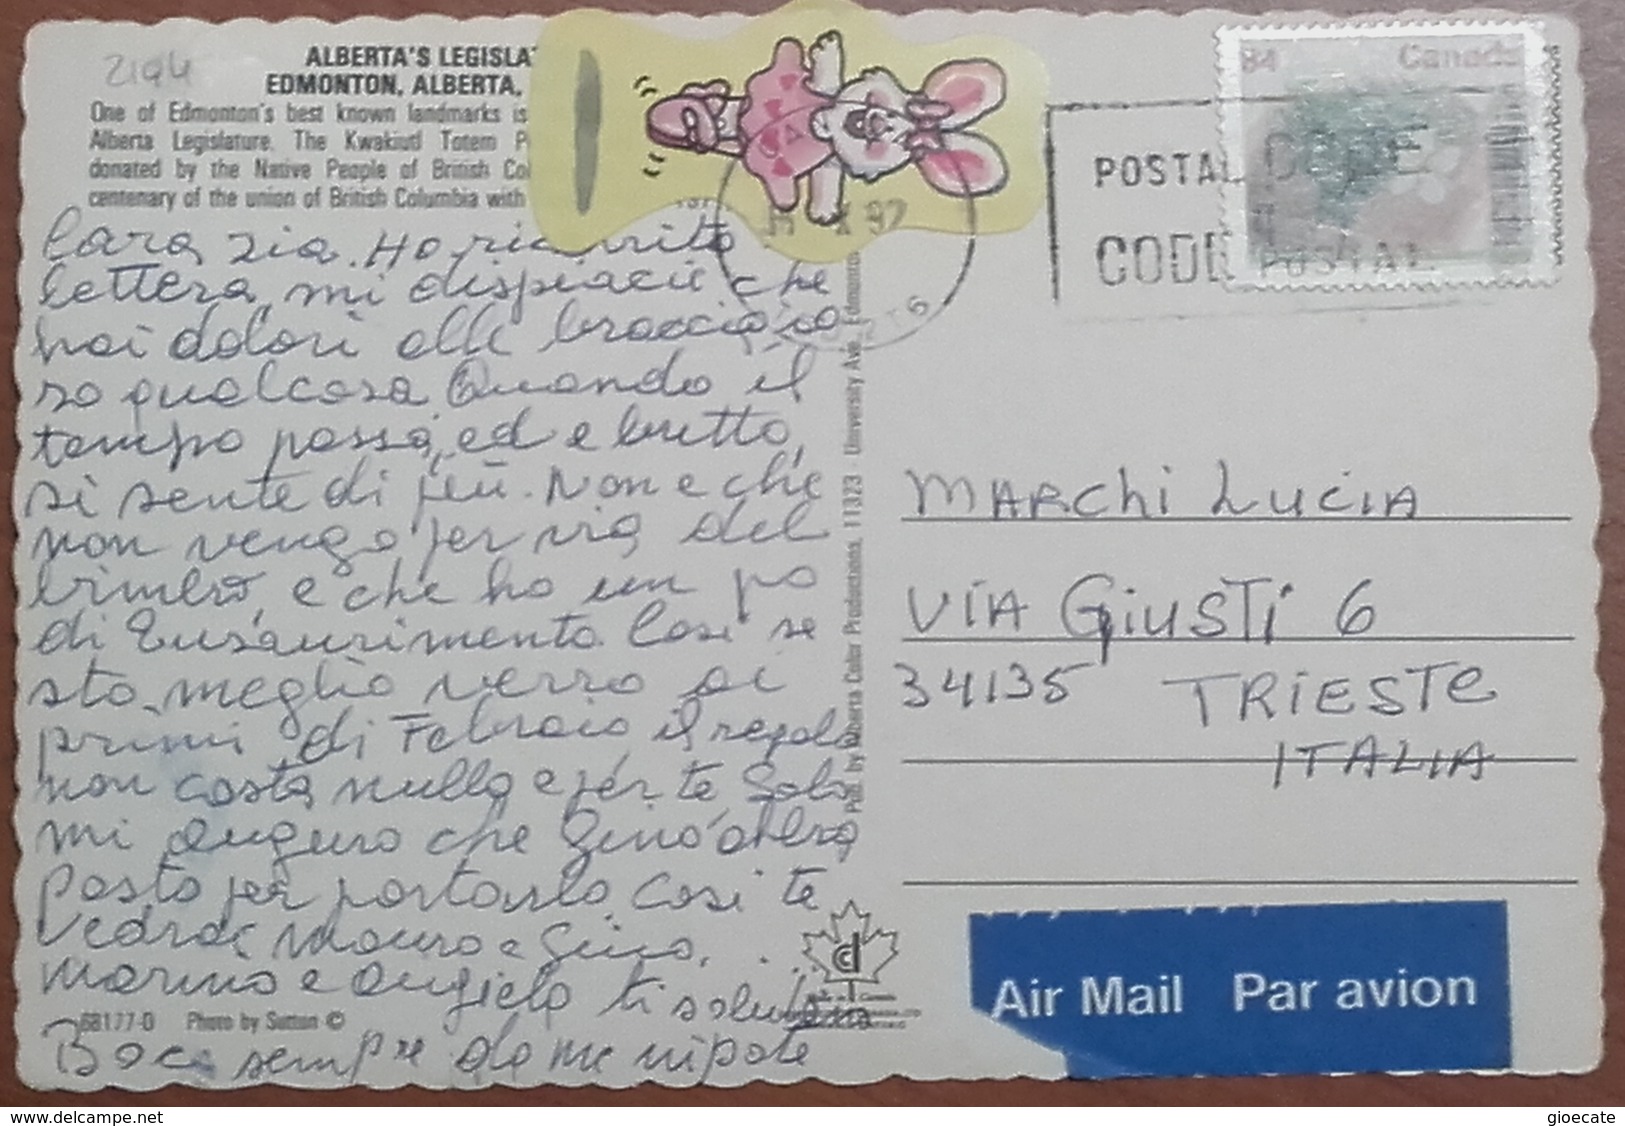 2194
ALBERTA'S LEGISLAT
EDMONTON, ALBERTA,
One of Edmonton's best known landmarks is
Alberta Legislature. The Kwakiutl Totem P
donated by the Native People of British Co
centenary of the union of British Columbia with
Cara zia. Ho ricevuto
lettera, mi dispiacie che
hai dolori alle braccia
so qualcosa Quando il
tempo passa, ed e brutto,
si sente di più. Non e che
non vengo per via del
bimbo, e che ho un po
di Esaurimento. Cosi se
sto meglio verro ai
primi di Febraio il regalo
non costa nulla e per te Solo
mi auguro che Gino abbia
Posto per portarlo Cosi te
Vedrai Mauro e Gino.
Marino e Angiela ti salutano
Baci sempre da me nipote
68177-D Photo by Sutton ©
Publ. by Alberta Color Productions, 11323 - University Ave., Edmonton
X 92
POSTAL CODE
CODE POSTAL
84 Canada
MARCHi LUCIA
VIA GiUSTi 6
34135 TRIESTE
ITALIA
Air Mail Par avion
www.delcampe.net
gioecate